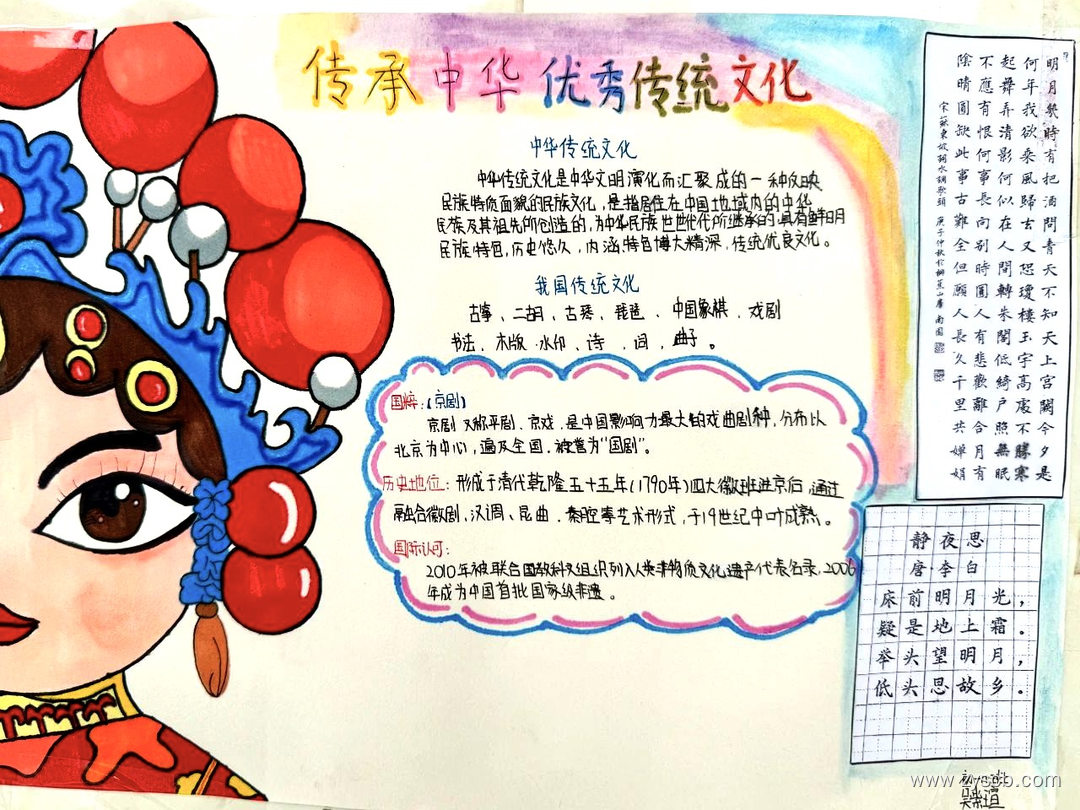 传承中华优秀传统文化
中华传统文化
中华传统文化是中华文明演化而汇聚成的一种反映
民族特质面貌的民族文化，是指居住在中国地域内的中华
民族及其祖先所创造的，为中华民族世世代代所继承的，具有鲜明
民族特色，历史悠久，内涵特色博大精深，传统优良文化。
我国传统文化
古筝、二胡、古琴、琵琶、中国象棋、戏剧
书法、木版水印、诗、词、曲子。
国粹：（京剧）
京剧又称平剧、京戏，是中国影响力最大的戏曲剧种，分布以
北京为中心，遍及全国，被誉为“国剧”。
历史地位：形成于清代乾隆五十五年（1790年）四大徽班进京后，通过
融合徽剧、汉调、昆曲、秦腔等艺术形式，于19世纪中叶成熟。
国际认可：
2010年被联合国教科文组织列入人类非物质文化遗产代表名录，2006
年成为中国首批国家级非遗。
明月幾時有把酒問青天不知天上宮闕今夕是
何年我欲乘風歸去又恐瓊樓玉宇高處不勝寒
起舞弄清影何似在人間轉朱閣低綺戶照無眠
不應有恨何事長向別時圓人有悲歡離合月有
陰晴圓缺此事古難全但願人長久千里共嬋娟
宋蘇東坡詞水調歌頭
静夜思
唐·李白
床前明月光，
疑是地上霜。
举头望明月，
低头思故乡。